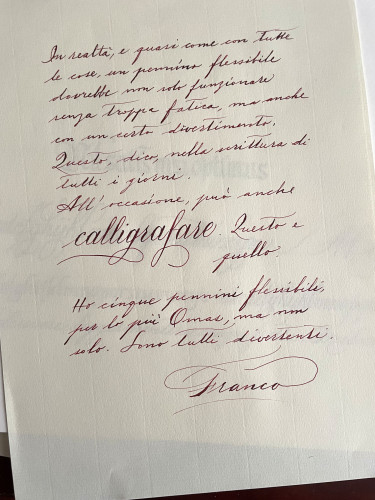 In realtà, e quasi come con tutte
le cose, un pennino flessibile
dovrebbe non solo funzionare
senza troppa fatica, ma anche
con un certo divertimento.
Questo, dico, nella scrittura di
tutti i giorni.
All'occasione, può anche
calligrafare. Questo e
quello.
Ho cinque pennini flessibili,
per lo più Omas, ma non
solo. Sono tutti divertenti.
Franco